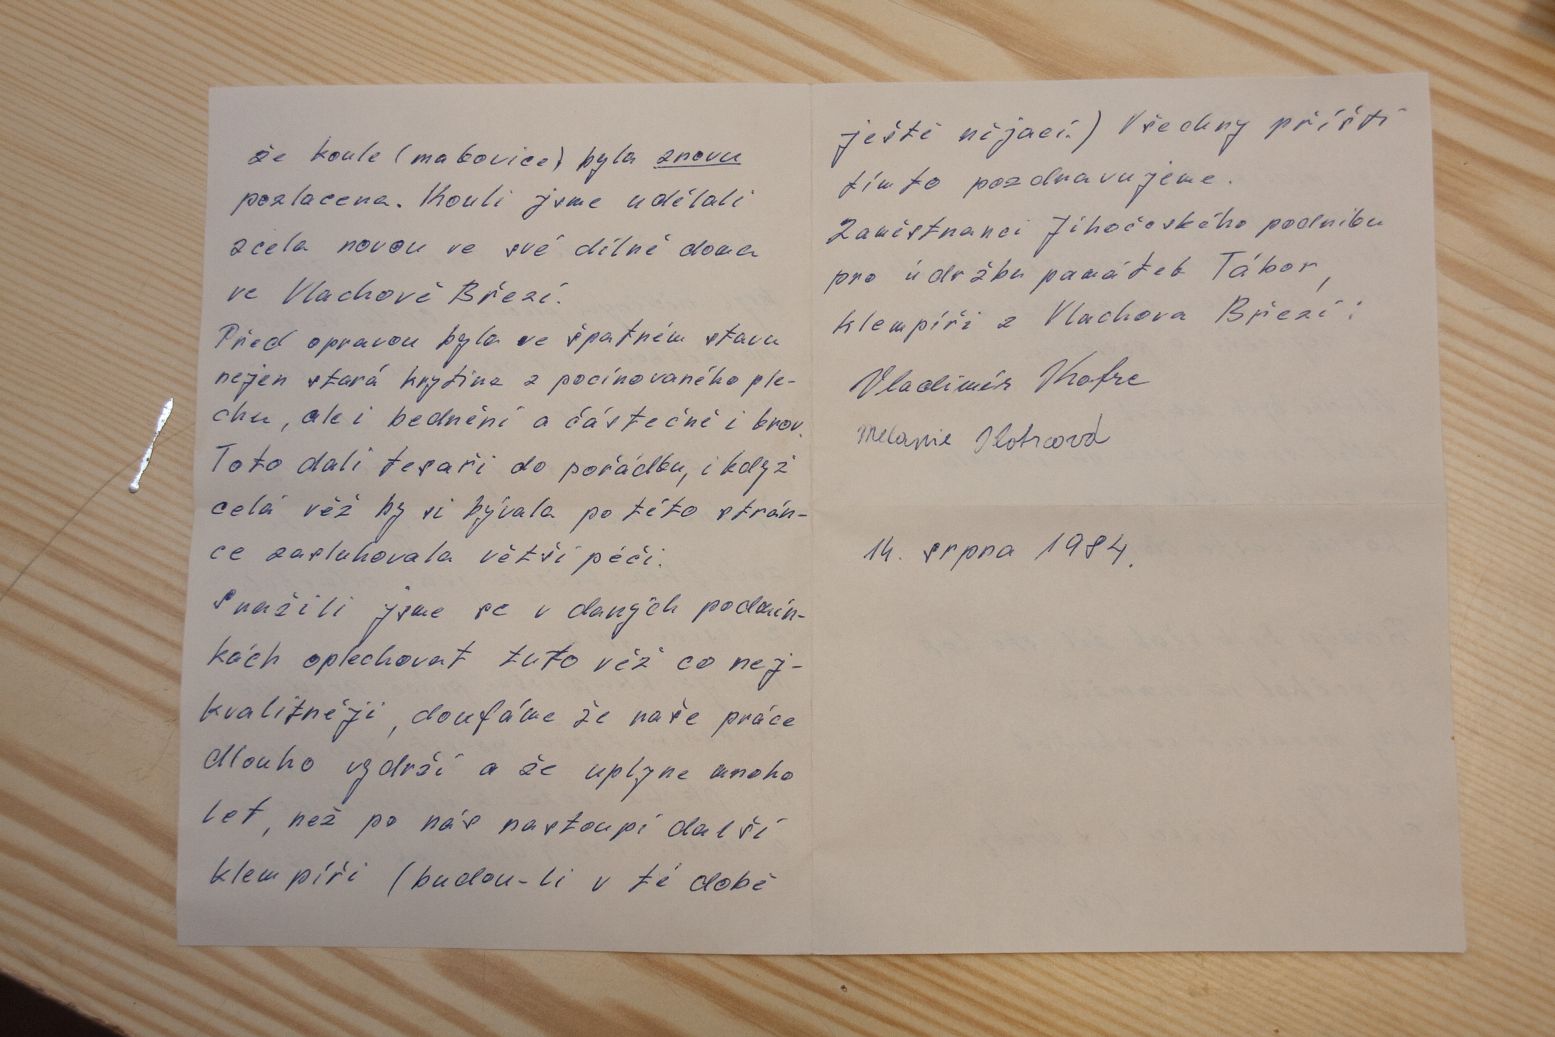 že koule (makovice) byla znovu
pozlacena. Kouli jsme udělali
zcela novou ve své dílně doma
ve Vlachově Březí.
Před opravou byla ve špatném stavu
nejen stará krytina z pocínovaného ple-
chu, ale i bednění a částečně i krov.
Toto dali tesaři do pořádku, i když
celá věž by si bývala po této strán-
ce zasluhovala větší péči.
Snažili jsme se v daných podmín-
kách oplechovat tuto věž co nej-
kvalitněji, doufáme že naše práce
dlouho vydrží a že uplyne mnoho
let, než po nás nastoupí další
klempíři (budou-li v té době
ještě nějací.) Všechny příští
tímto pozdravujeme.
Zaměstnanci Jihočeského podniku
pro údržbu památek Tábor,
klempíři z Vlachova Březí:
Vladimír Kotrc
Melanie Kotrcová
14. srpna 1984.